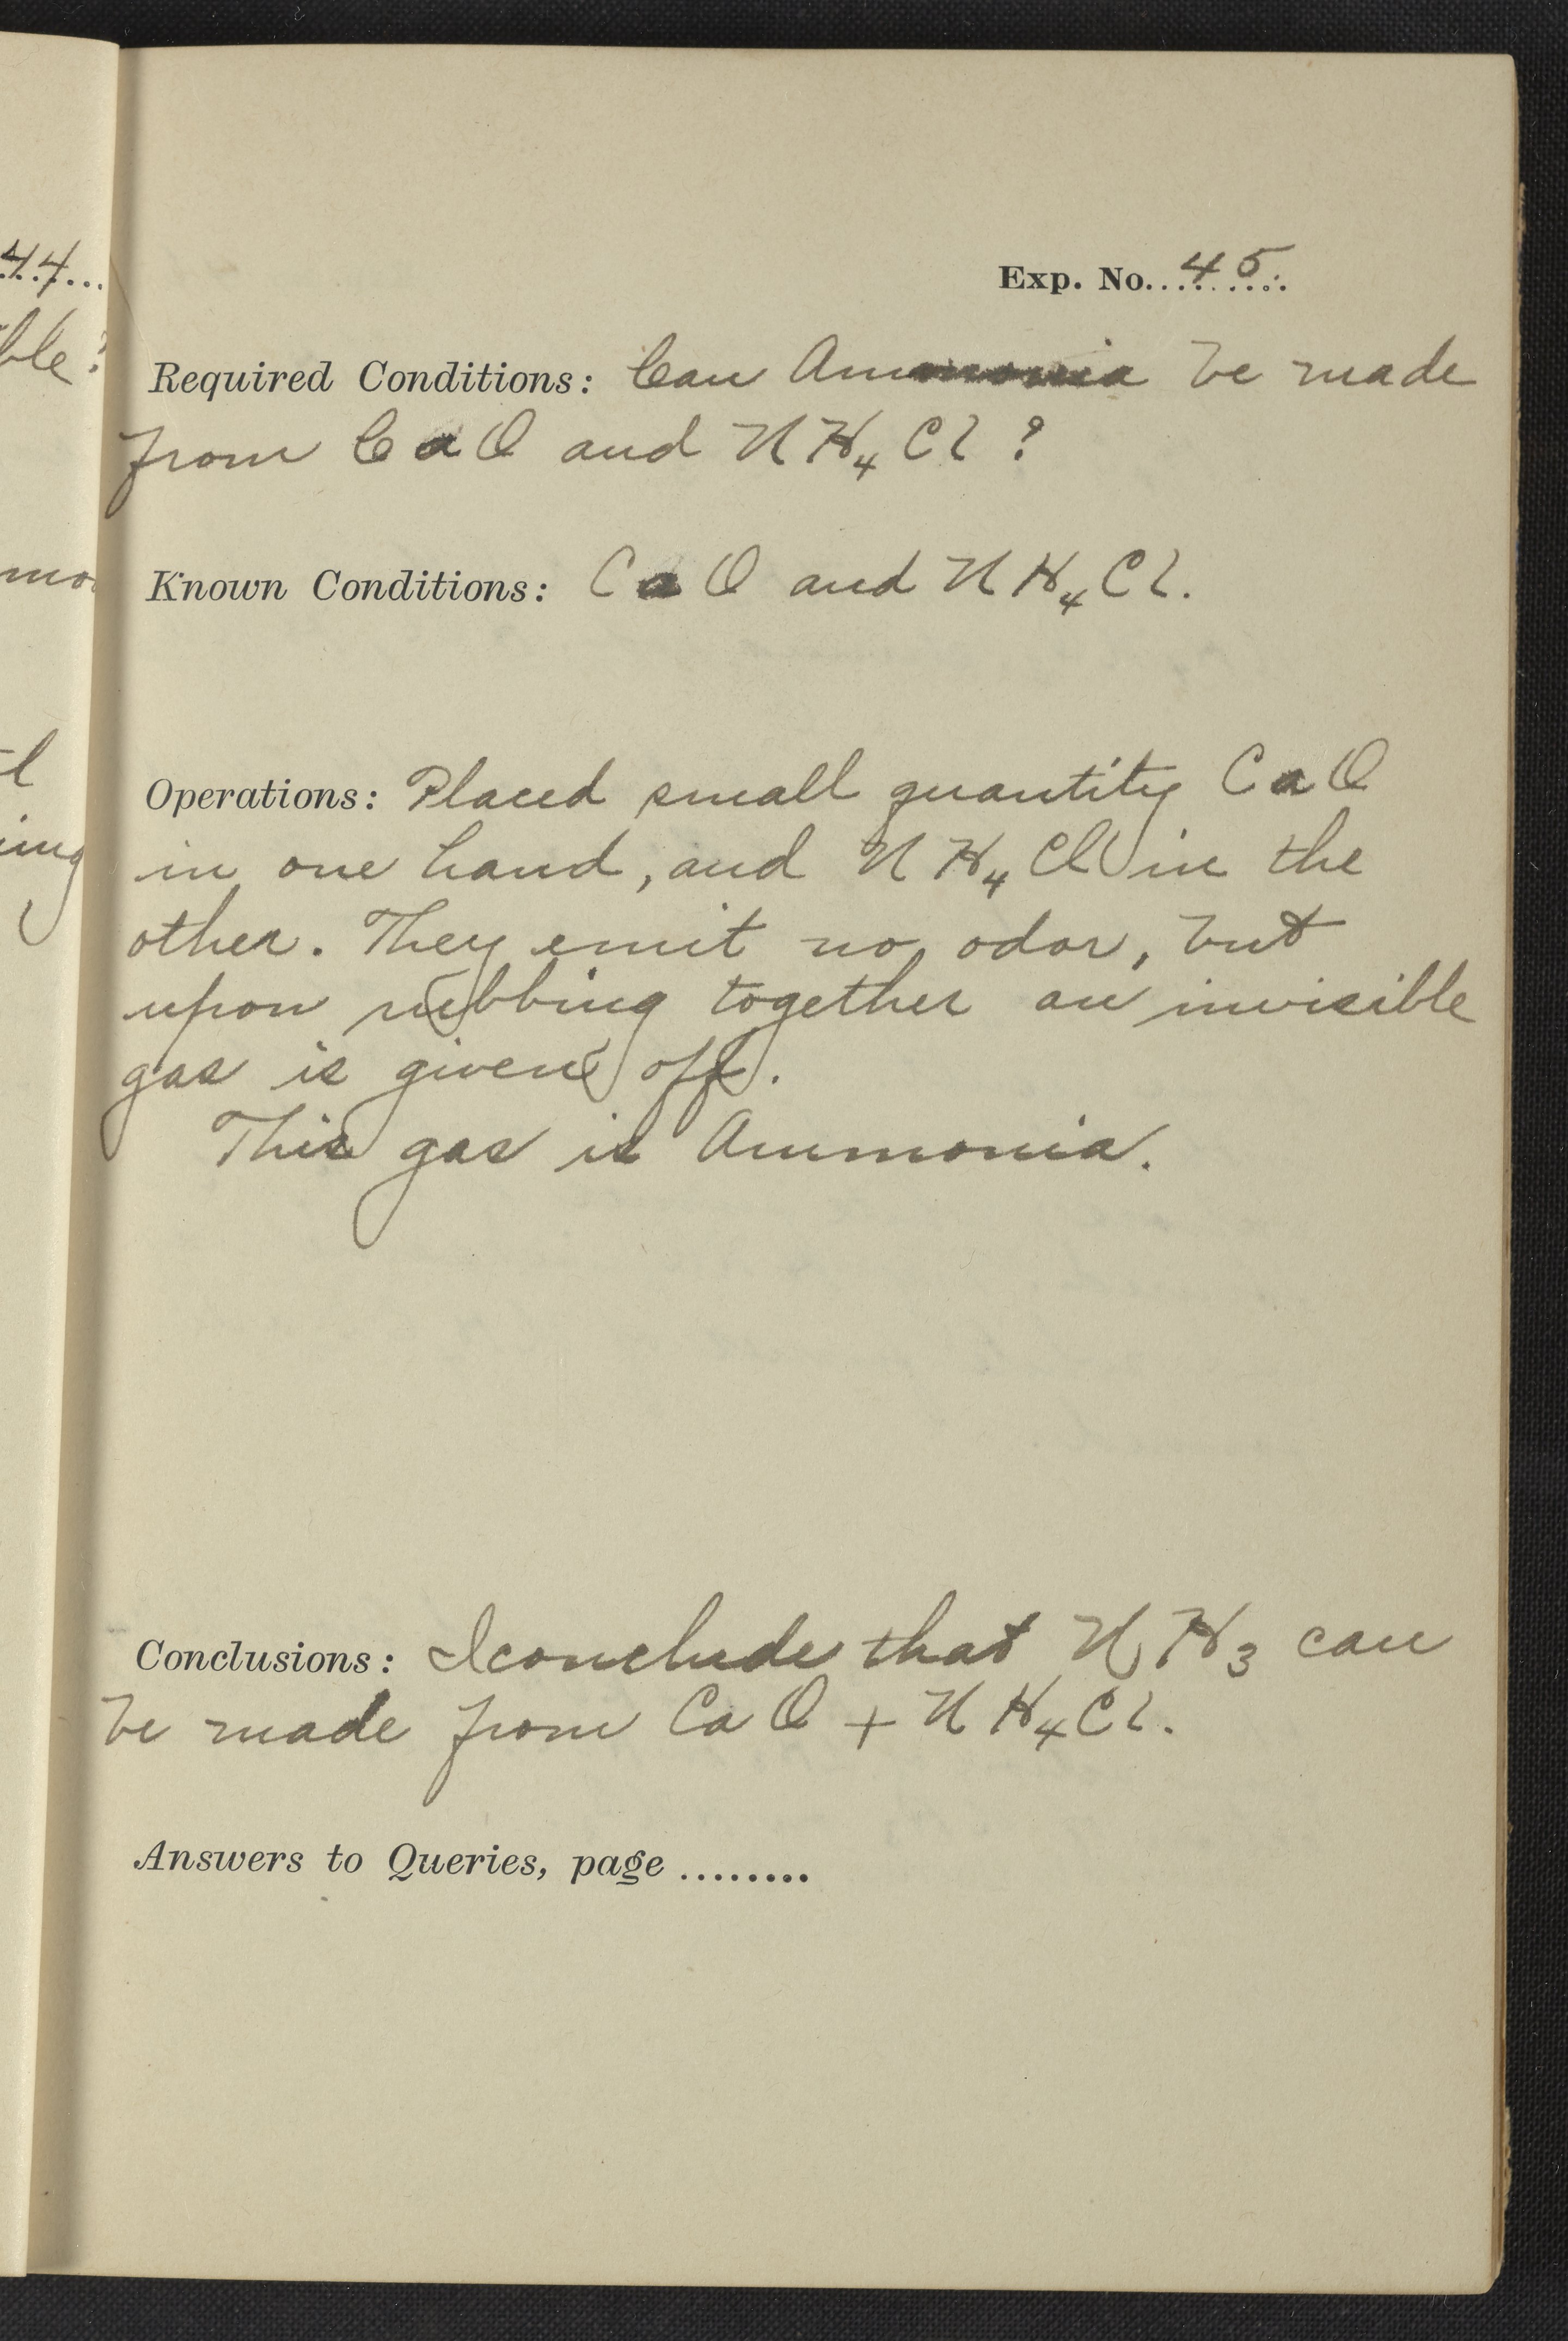 44...
ble?
mo
l
ing
Exp. No. 45
Required Conditions: Can Ammonia be made
from CaO and NH₄Cl?
Known Conditions: CaO and NH₄Cl.
Operations: Placed small quantity CaO
in one hand, and NH₄Cl in the
other. They emit no odor, but
upon rubbing together an invisible
gas is given off.
This gas is Ammonia.
Conclusions: I conclude that NH₃ can
be made from CaO + NH₄Cl.
Answers to Queries, page ........